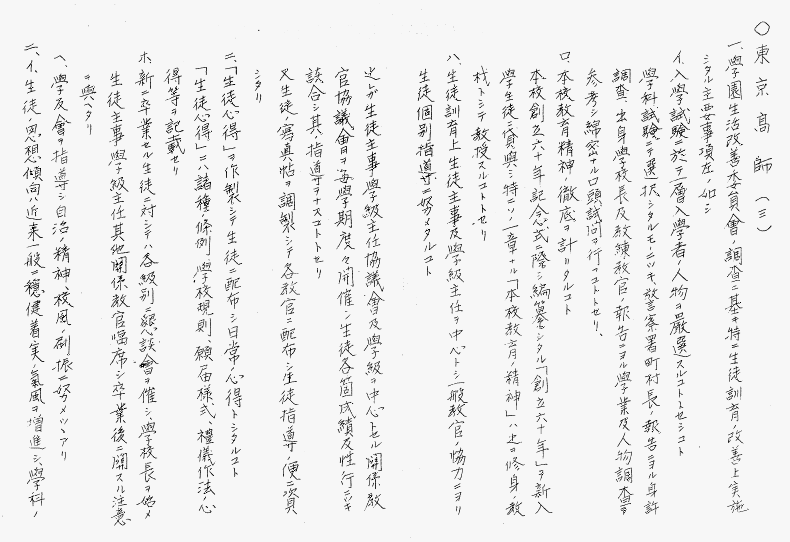 〇東京高師(三)
一、學園生活改善委員會ノ調査ニ基キ特ニ生徒訓育ノ改善上實施
シタル主要事項左ノ如シ
イ、入學試驗ニ於テ一層入學者ノ人物ヲ嚴選スルコトトセシコト
學科試驗ニヨリ選択シタルモノニツキ警察署町村長ノ報告ニヨル身許
調査、出身學校長及教練教官ノ報告ニヨル學業及人物調査ヲ
参考シ綿密ナル口頭試問ヲ行フコトトセリ、
ロ、本校教育精神ノ徹底ヲ計リタルコト
本校創立六十年記念式ニ際シ編纂シタル「創立六十年」ヲ新入
學生徒ニ貸與シ特ニソノ一章ナル「本校教育ノ精神」ハ之ヲ修身ノ教
材トシテ教授スルコトトセリ
ハ、生徒訓育上生徒主事及學級主任ヲ中心トシ一般教官ノ協力ニヨリ
生徒個別指導ニ努メタルコト
之ガ爲生徒主事學級主任協議會及學級ヲ中心トセル關係教
官協議會ヲ毎學期度々開催シ生徒各箇成績及性行ニツキ
談合シ其ノ指導ヲナスコトトセリ
又生徒ノ寫眞帖ヲ調製シテ各教官ニ配布シ生徒指導ノ便ニ資
シタリ
ニ、「生徒心得」ヲ作製シテ生徒ニ配布シ日常ノ心得トシタルコト
「生徒心得」ニハ諸種ノ條例、學校規則、願届様式、禮儀作法ノ心
得等ヲ記載セリ
ホ、新ニ卒業セル生徒ニ対シテハ各級別ニ懇談會ヲ催シ、學校長ヲ始メ
生徒主事學級主任其他關係教官臨席シ卒業後ニ關スル注意
ヲ與ヘタリ
ヘ、學友會ヲ指導シ自治ノ精神、校風ノ刷振ニ努メツツアリ
二、イ、生徒ノ思想傾向ハ近来一般ニ穩健着実ノ氣風ヲ増進シ學科ノ